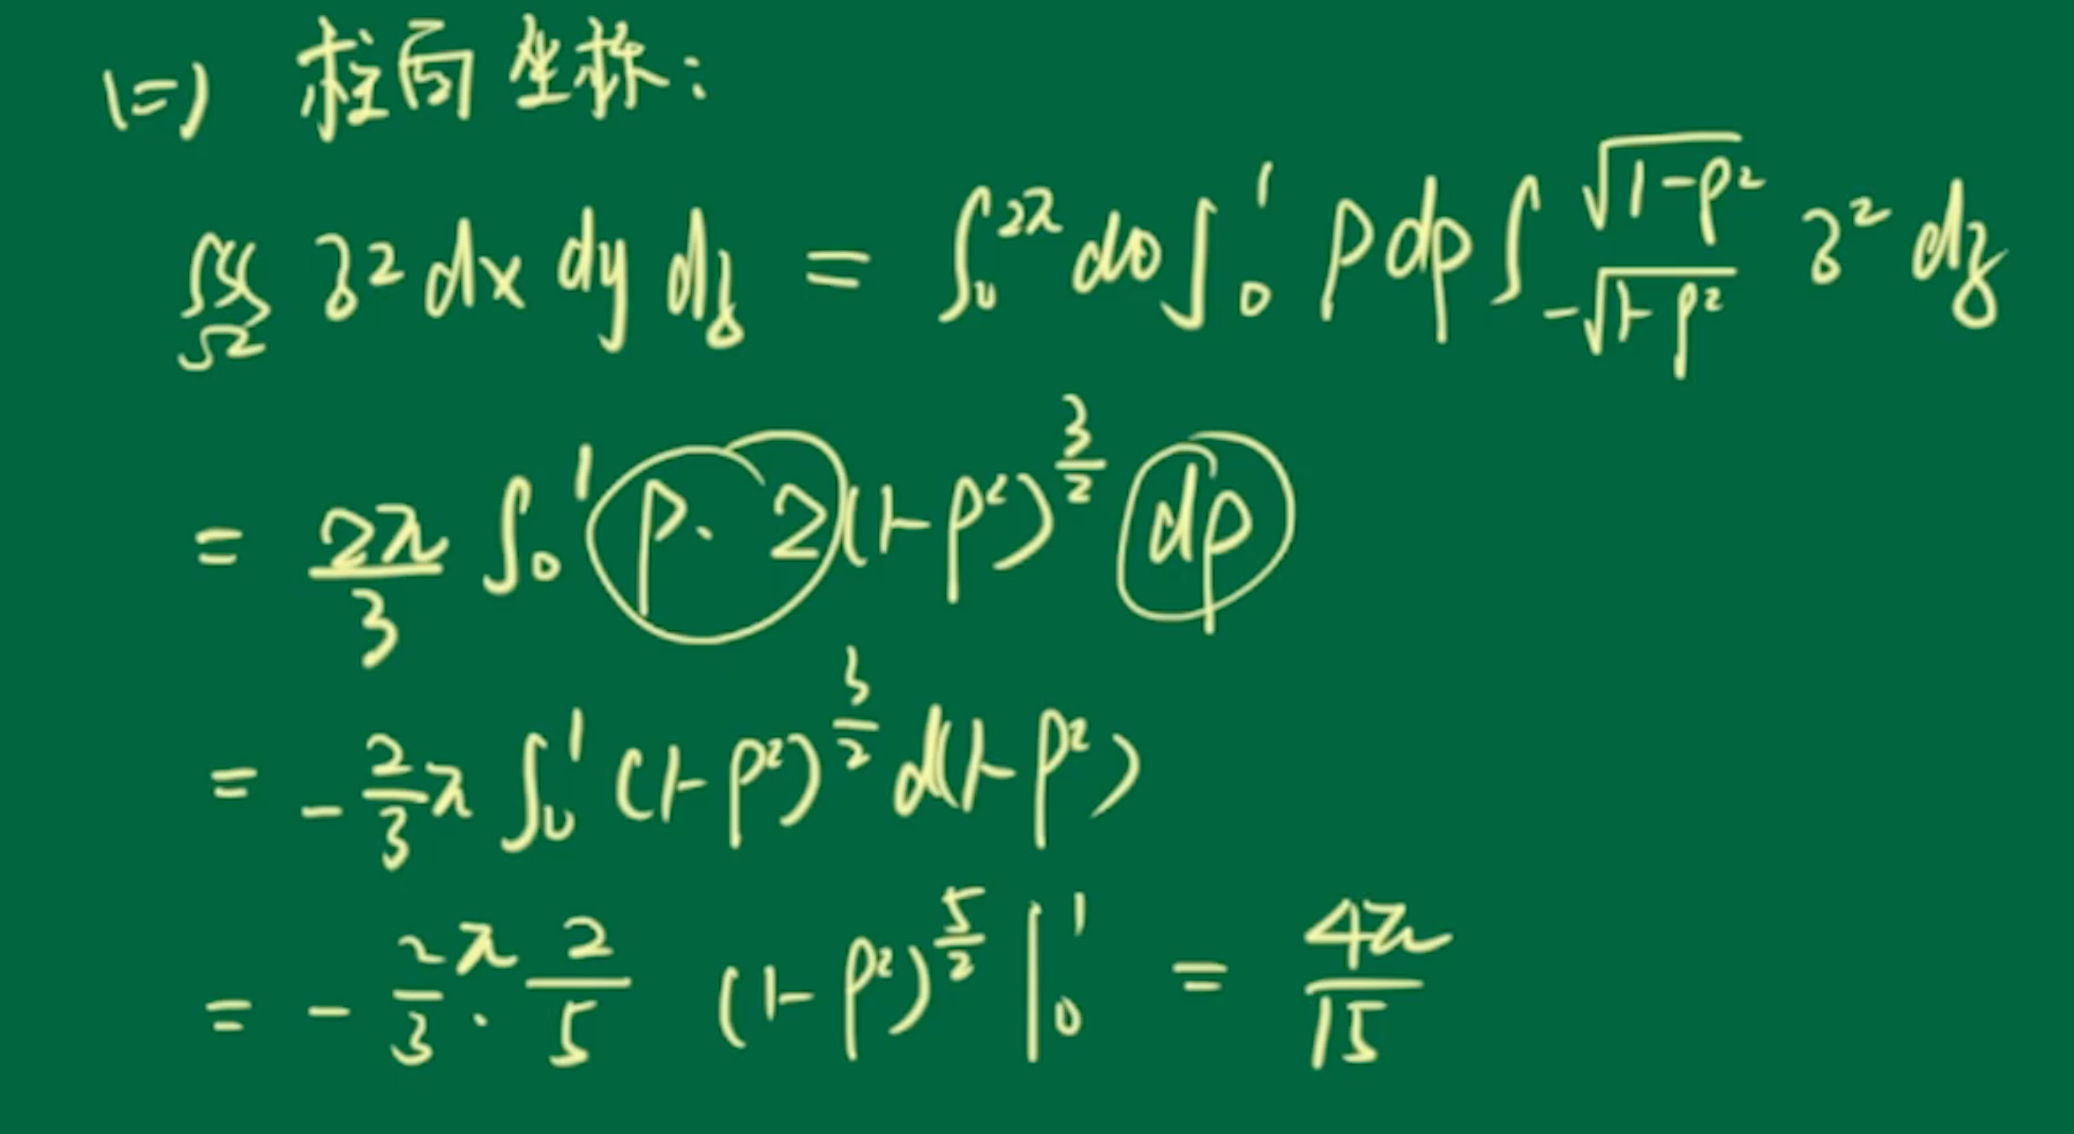 (二) 柱面坐标:
∭_Ω z² dx dy dz = ∫₀^{2π} dθ ∫₀¹ ρ dρ ∫_{-√(1-ρ²)}^{√(1-ρ²)} z² dz
= 2π/3 ∫₀¹ ρ · 2(1-ρ²)^{3/2} dρ
= -2/3 π ∫₀¹ (1-ρ²)^{3/2} d(1-ρ²)
= -2/3 π · 2/5 (1-ρ²)^{5/2} |₀¹ = 4π/15